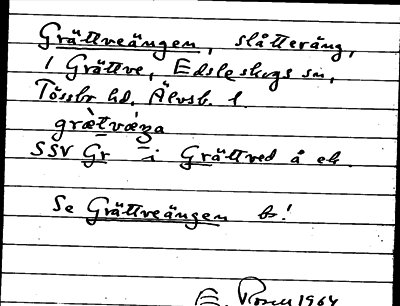 Grättveängen, slåtteräng,
i Grättve, Edsleskogs sn,
Tössbo hd, Älvsb. l.
græ̀tvæŋa
SSV Gr i Grättved å ek.
Se Grättveängen b!
E. Rosell 1964